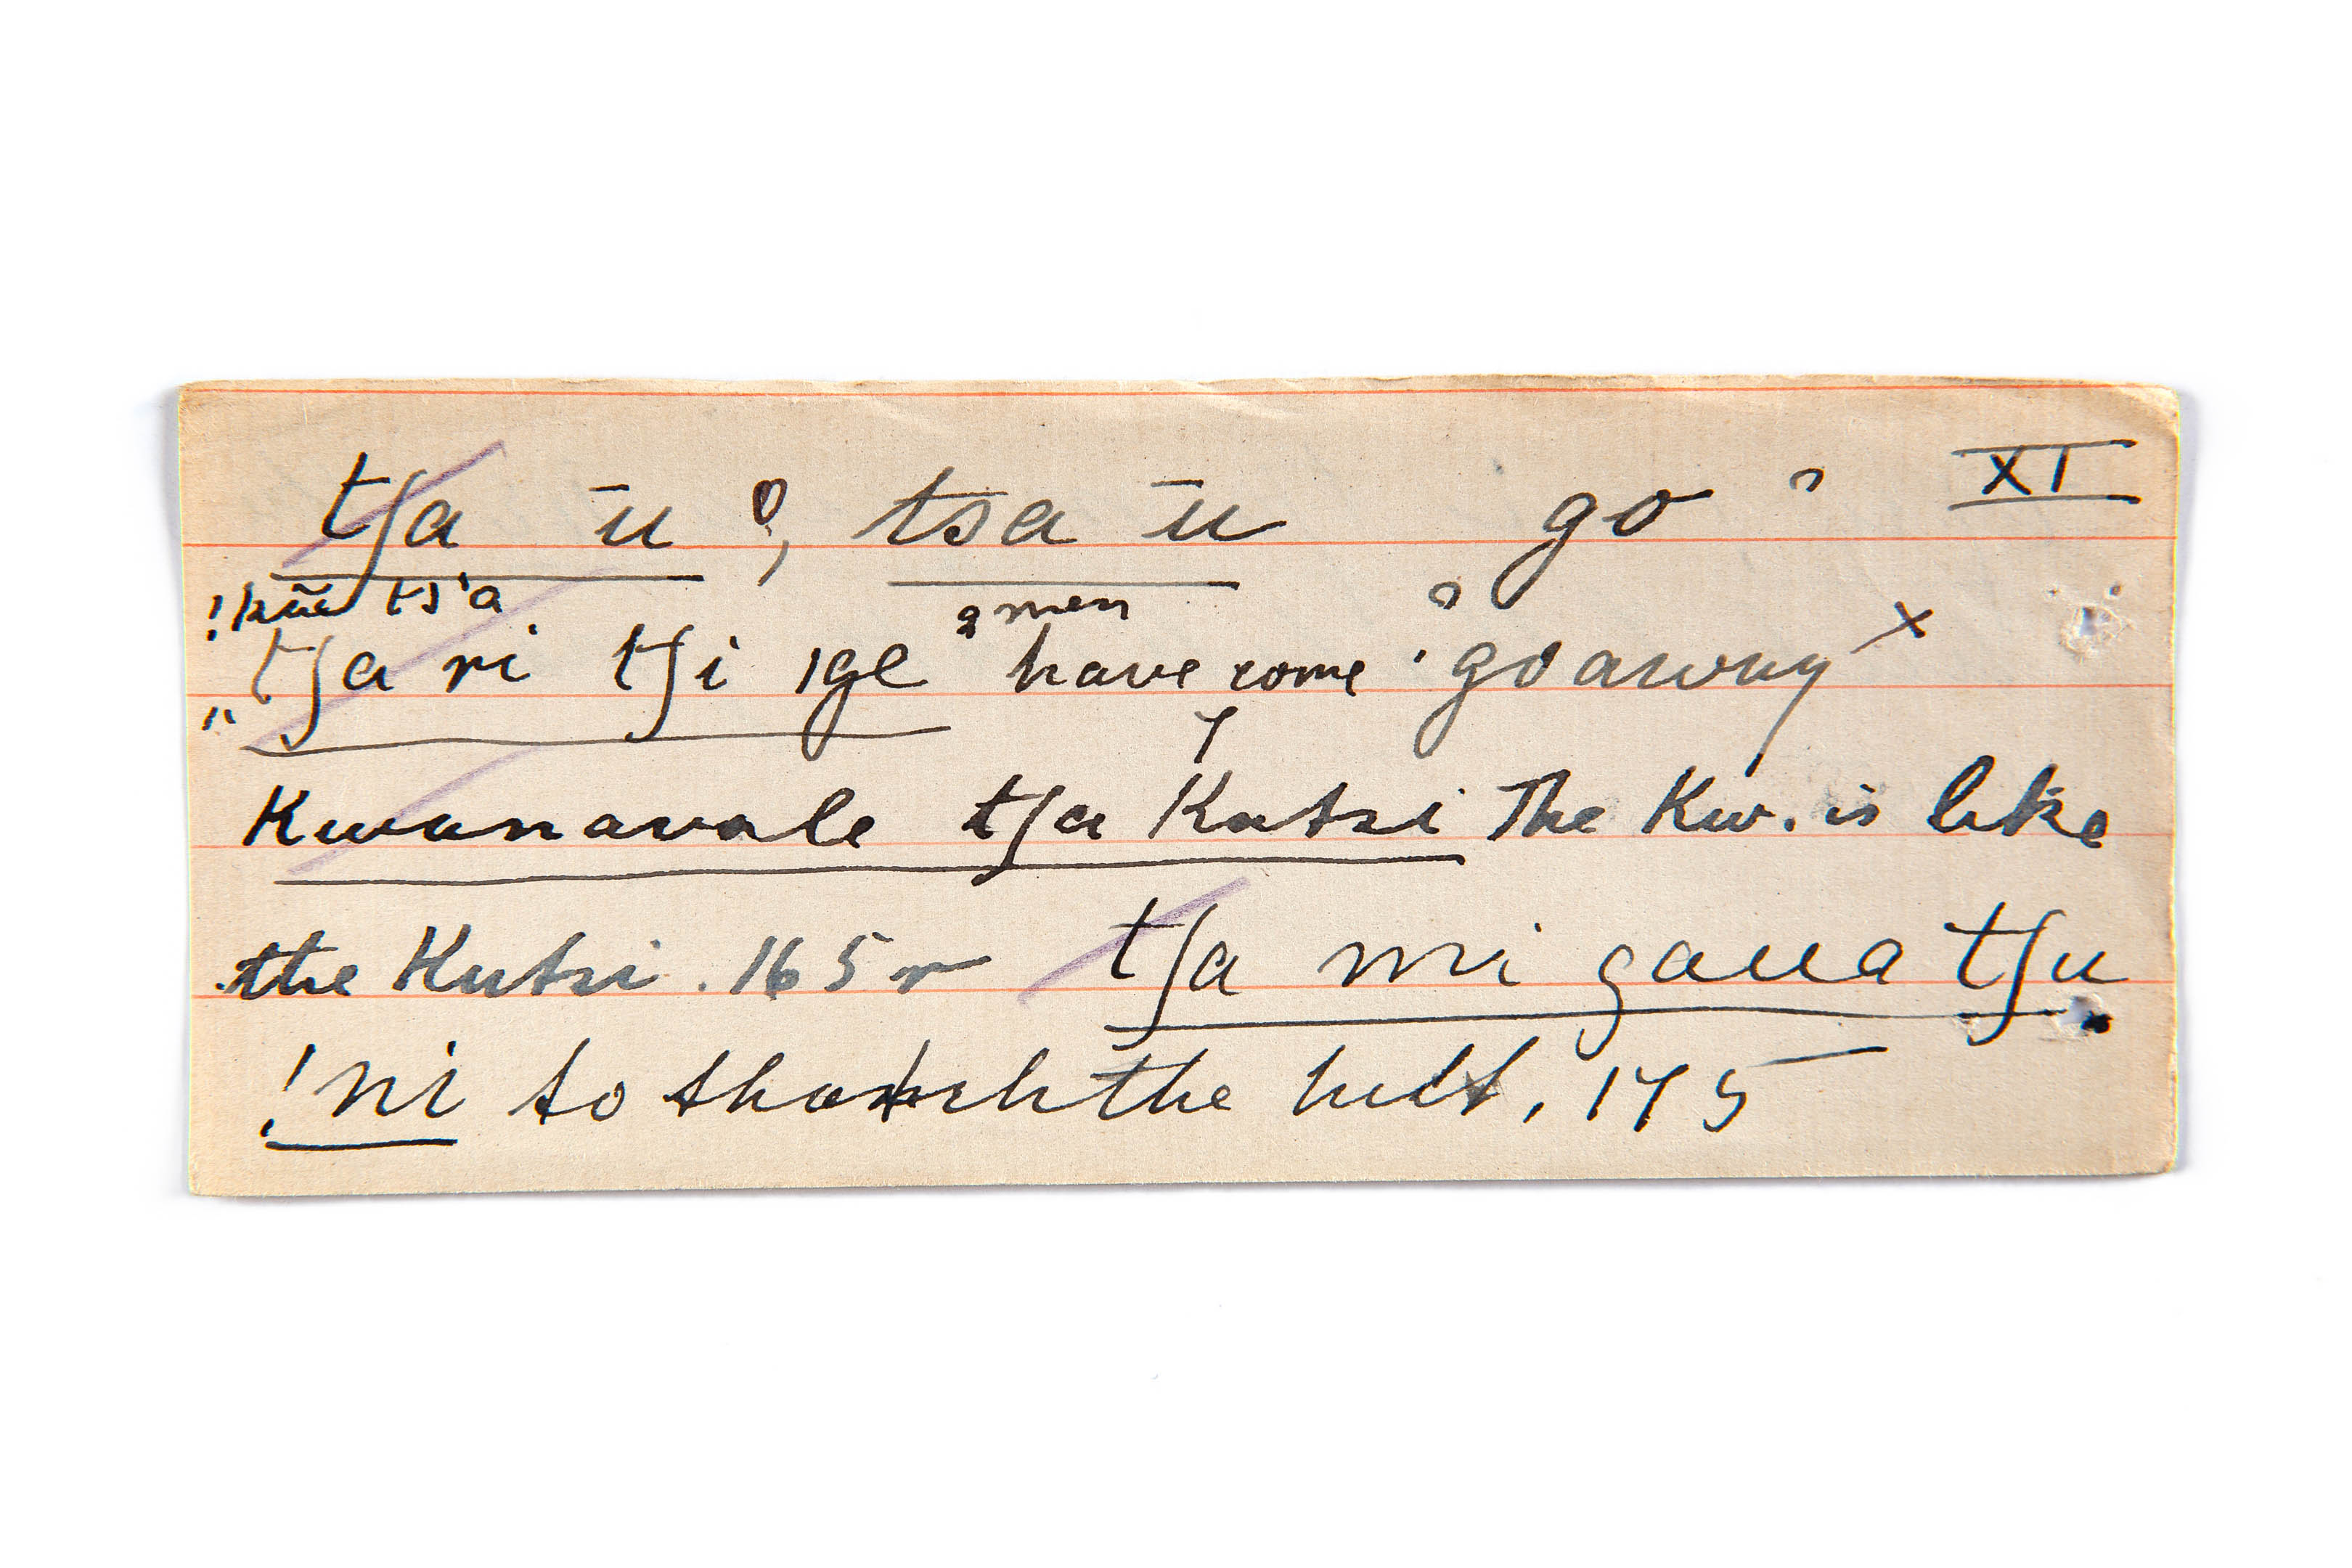 tʃa ū ʔ, tsa ū go ʔ XI
!kūü ts'a a men
tʃa ri tʃi ıge have come · go away ×
"
Kwanavale tʃa Kutsi The Kw. is like
the Kutsi . 165 r tʃa mi gaua tʃu
!ni to thatch the hut, 175